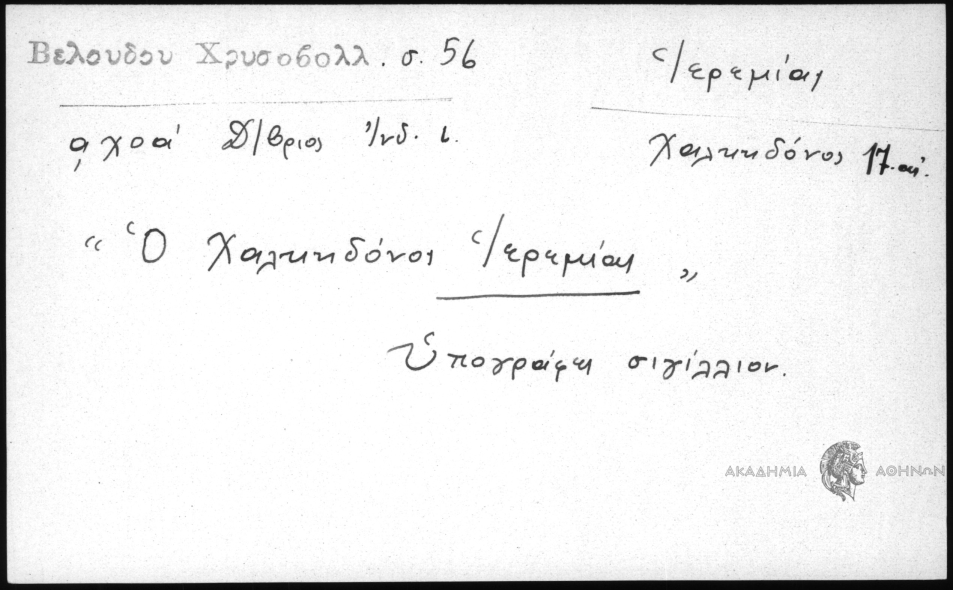 Βελουδου Χρυσοβολλ. σ. 56
Ἱερεμίας
͵αχοα´ Δ/βριος Ἰνδ. ι.
Χαλκηδόνος 17 αἰ.
“ Ὁ Χαλκηδόνος Ἱερεμίας „
Ὑπογράφει σιγίλλιον.
ΑΚΑΔΗΜΙΑ ΑΘΗΝΩΝ